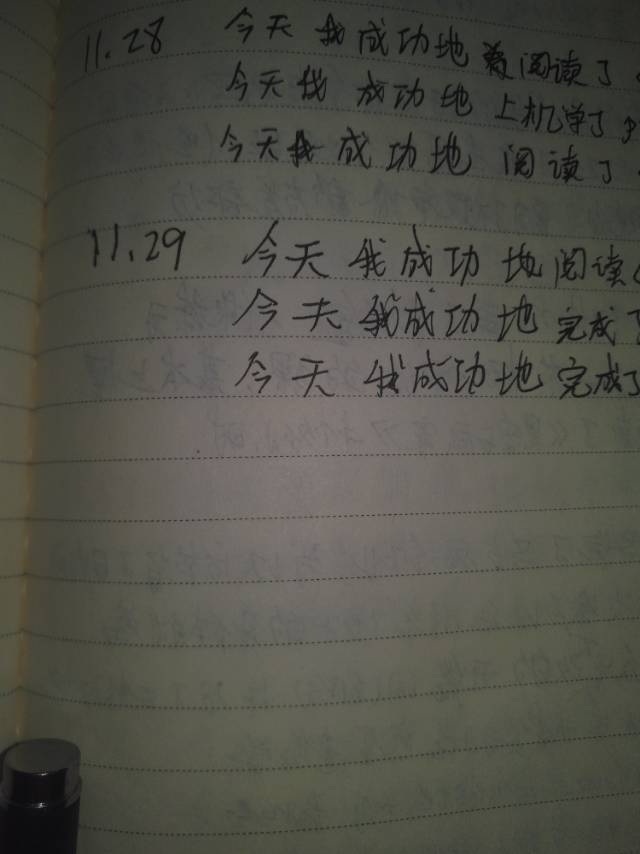 11.28 今天我成功地阅读了
今天我成功地上机学了
今天我成功地阅读了
11.29 今天我成功地阅读
今天我成功地完成了
今天我成功地完成了